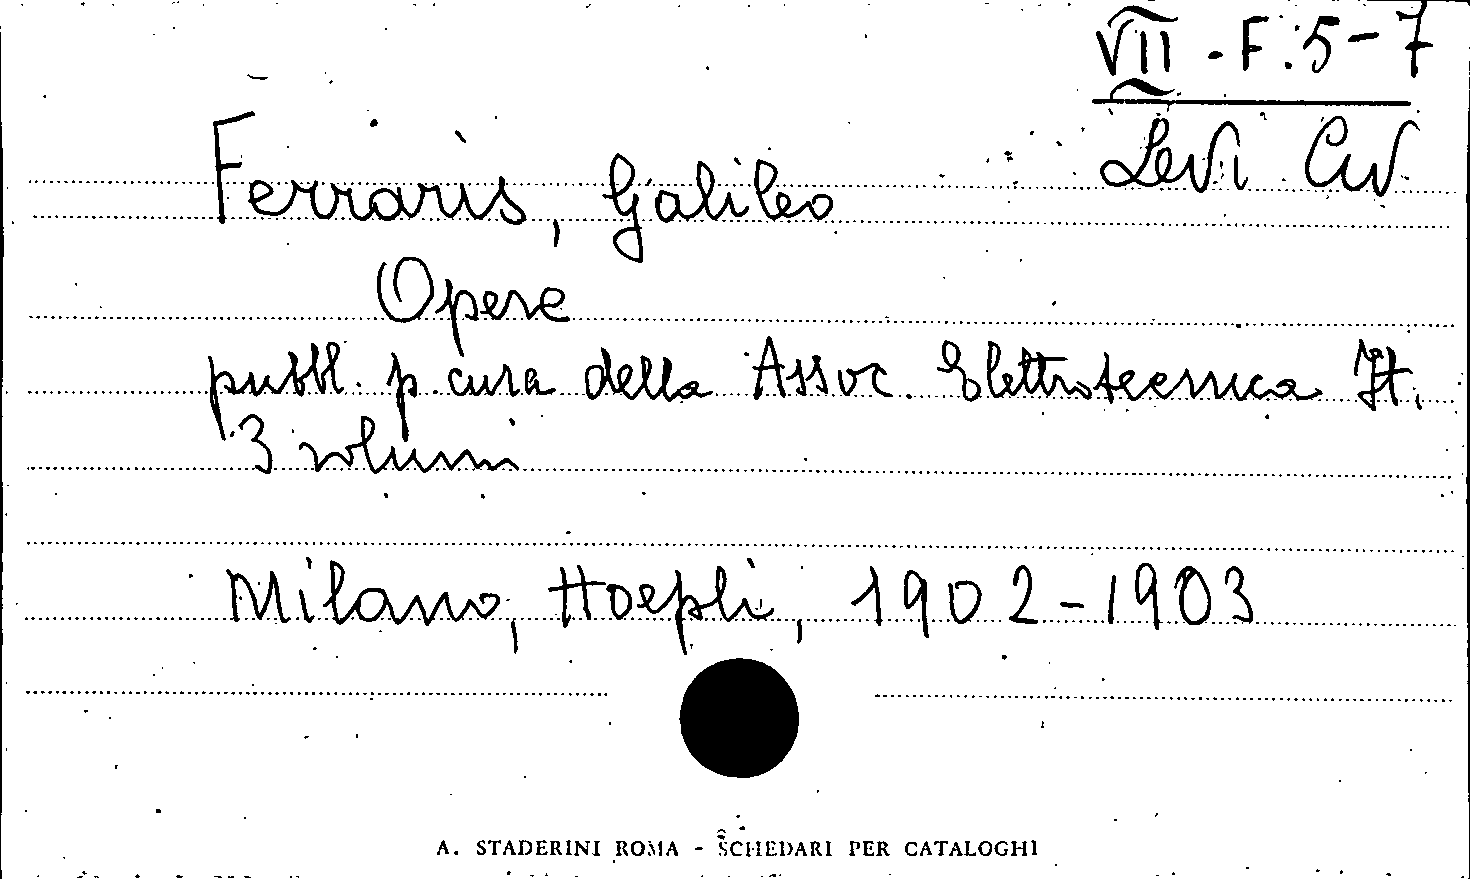 VII - F. 5-7
Levi Civ
Ferraris, Galileo
Opere
pubbl. p. cura della Assoc. Elettrotecnica It.
3 volumi
Milano, Hoepli, 1902-1903
A. STADERINI ROMA - SCHEDARI PER CATALOGHI